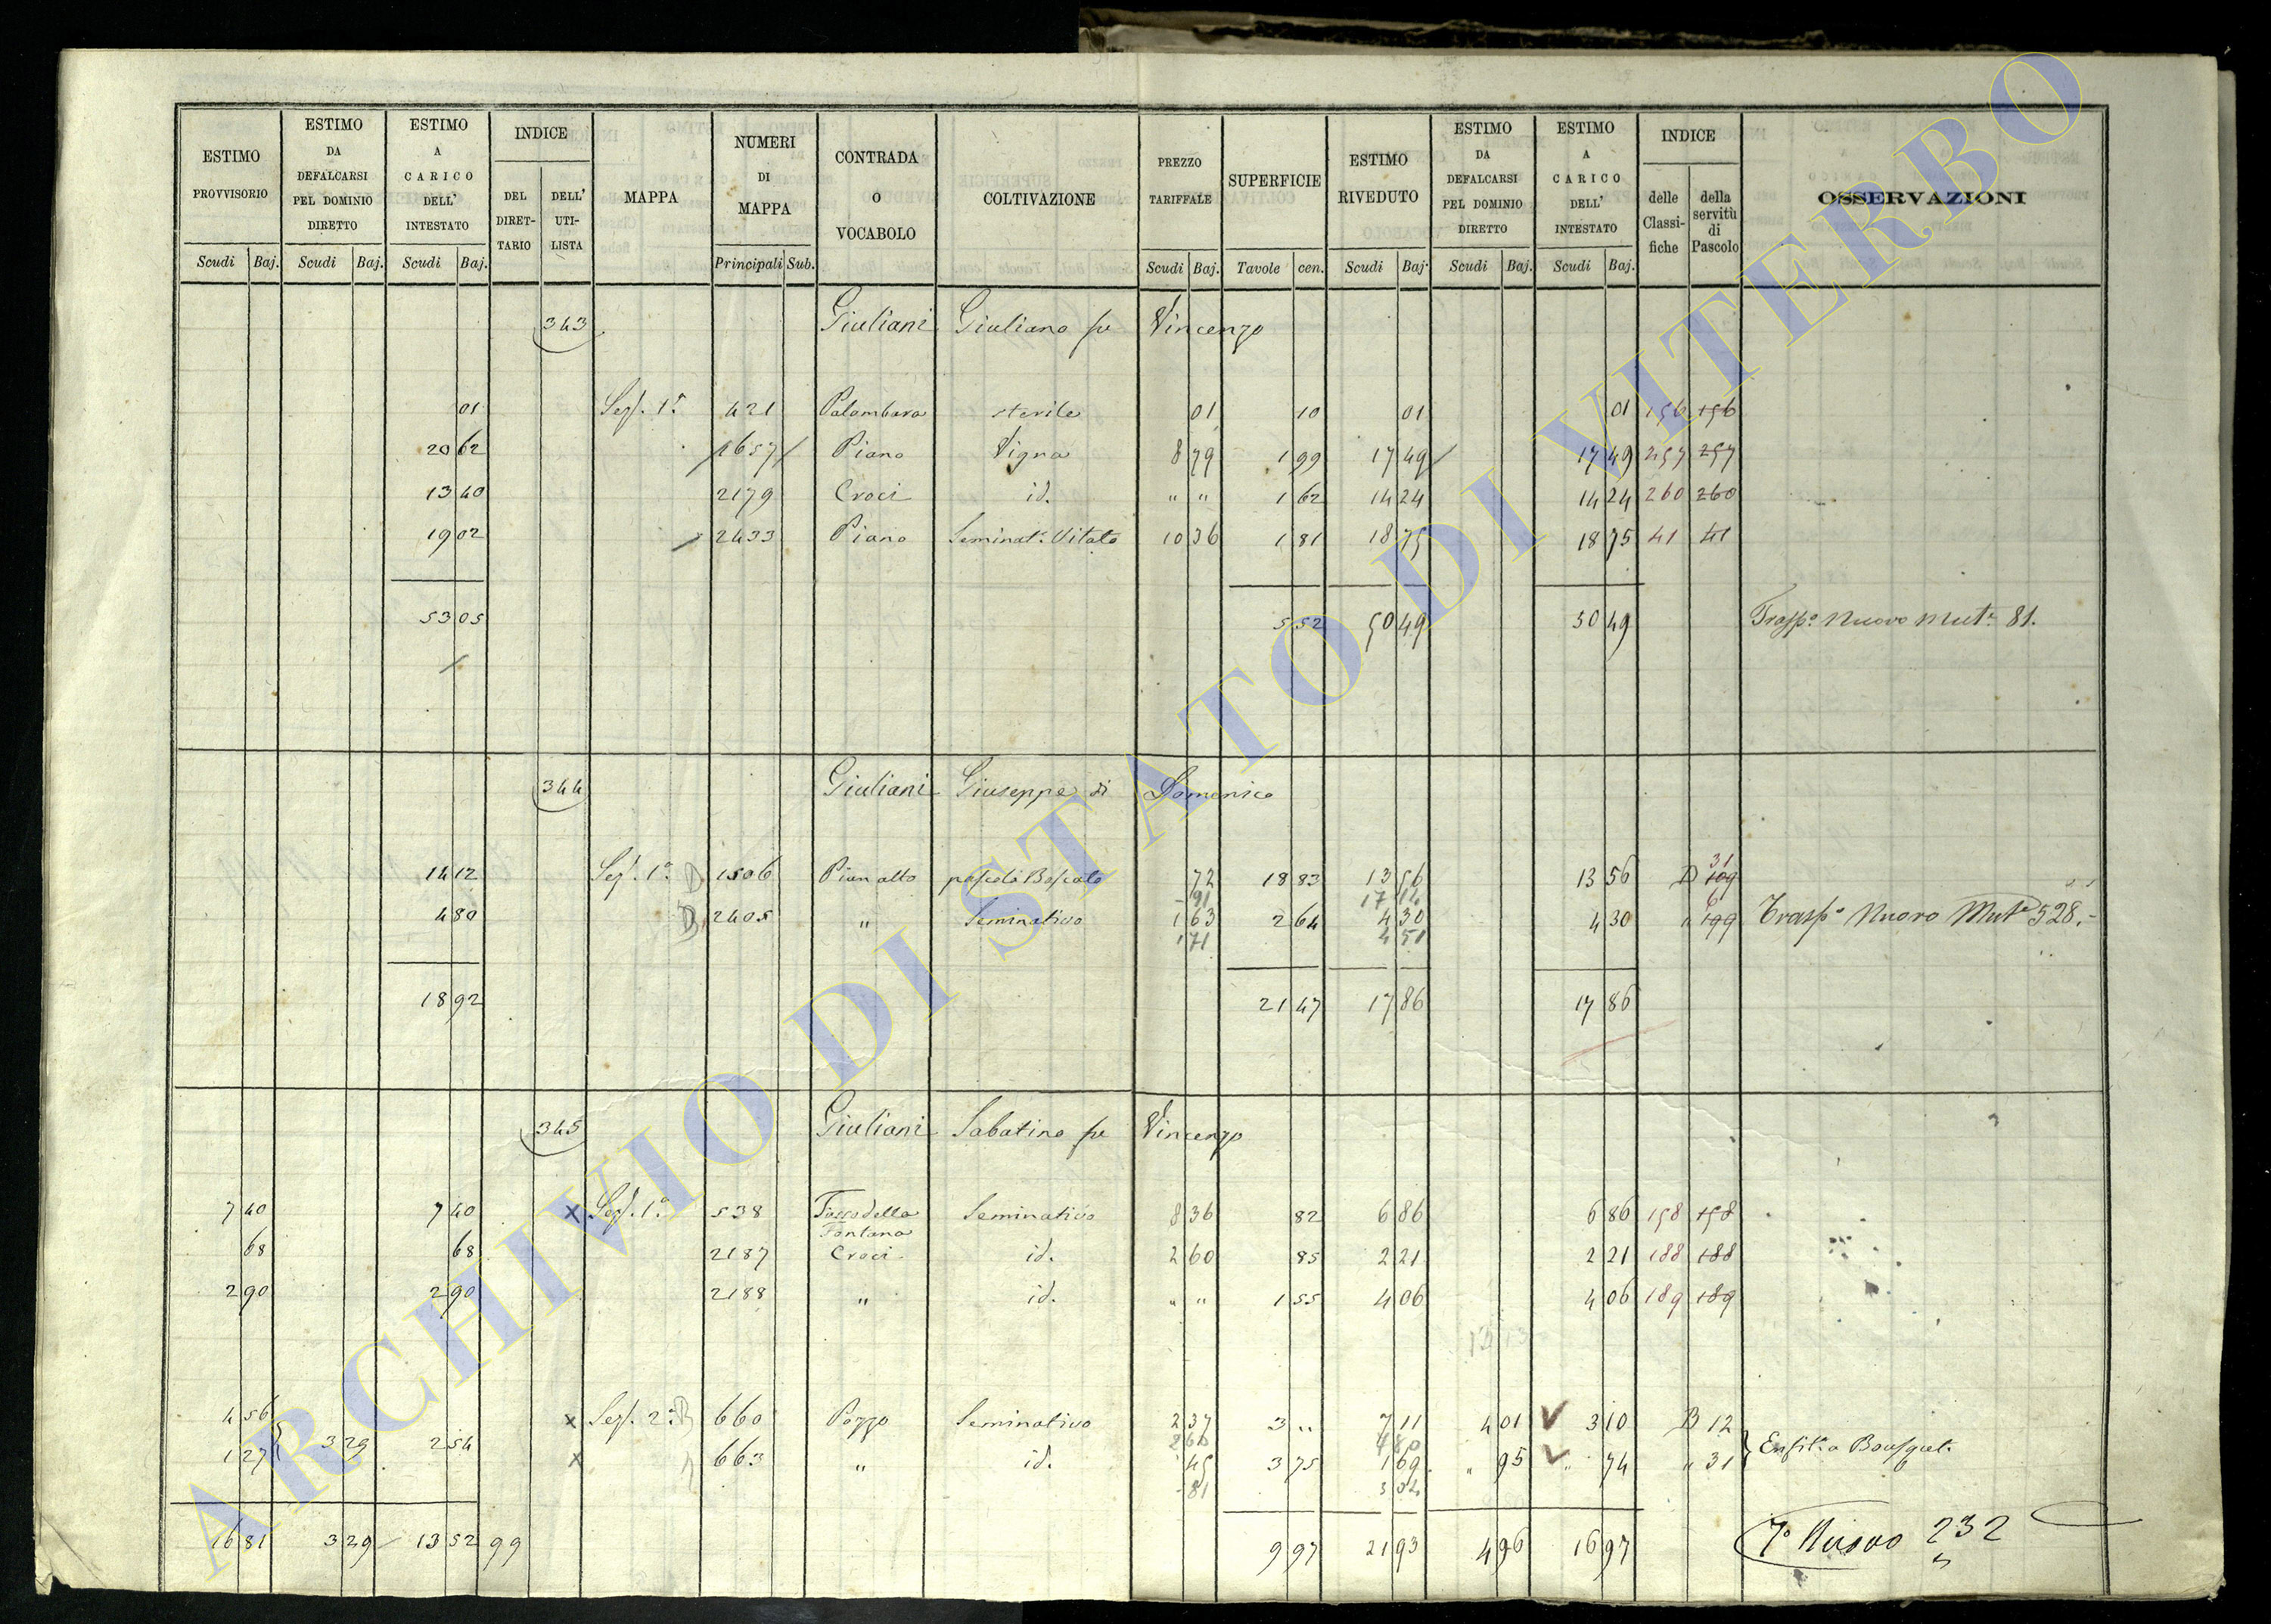 ESTIMO PROVVISORIO
ESTIMO DA DEFALCARSI PEL DOMINIO DIRETTO
ESTIMO A CARICO DELL' INTESTATO
INDICE
DEL DIRET-TARIO
DELL' UTI-LISTA
MAPPA
NUMERI DI MAPPA
CONTRADA O VOCABOLO
COLTIVAZIONE
PREZZO TARIFFALE
SUPERFICIE
ESTIMO RIVEDUTO
ESTIMO DA DEFALCARSI PEL DOMINIO DIRETTO
ESTIMO A CARICO DELL' INTESTATO
INDICE
delle Classi-fiche
della servitù di Pascolo
OSSERVAZIONI
Scudi Baj. Scudi Baj. Scudi Baj. Principali Sub. Scudi Baj. Tavole cen. Scudi Baj. Scudi Baj. Scudi Baj.
343 Giuliani Giuliano fu Vincenzo
01 Sez. 1ª 421 Palombara sterile 01 10 01 01 156 156
20 62 1657 Piano Vigna 8 79 1 99 17 49 17 49 257 257
13 40 2179 Croci id. " " 1 62 14 24 14 24 260 260
19 02 2433 Piano Seminatº Vitato 10 36 1 81 18 75 18 75 41 41
53 05 5 52 50 49 50 49 Traspº Nuovo Mutª 81.
344 Giuliani Giuseppe di Domenico
14 12 Sez. 1ª 1506 Pian alto pascolo Boscato 72 18 83 13 56 13 56 D 109 31
91 17 14
4 80 2405 " Seminativo 1 63 2 64 4 30 4 30 " 199 61 Traspº Nuovo Mutª 528.
1 71 4 51
18 92 21 47 17 86 17 86
345 Giuliani Sabatino fu Vincenzo
7 40 7 40 x Sez. 1ª 538 Fosso della Fontana Seminativo 8 36 82 6 86 6 86 158 158
68 68 2187 Croci id. 2 60 85 2 21 2 21 188 188
2 90 2 90 2188 " id. " " 1 55 4 06 4 06 189 189
4 56 x Sez. 2ª 660 Pozzo Seminativo 2 37 3 " 7 11 4 01 3 10 B 12
3 29 2 54 2 60 7 80
1 27 x 663 " id. 45 3 75 1 69 " 95 " 74 " 31 Enfit. a Bousquet.
81 3 04
16 81 3 29 13 52 99 9 97 21 93 4 96 16 97 Tº Nuovo 232
ARCHIVIO DI STATO DI VITERBO